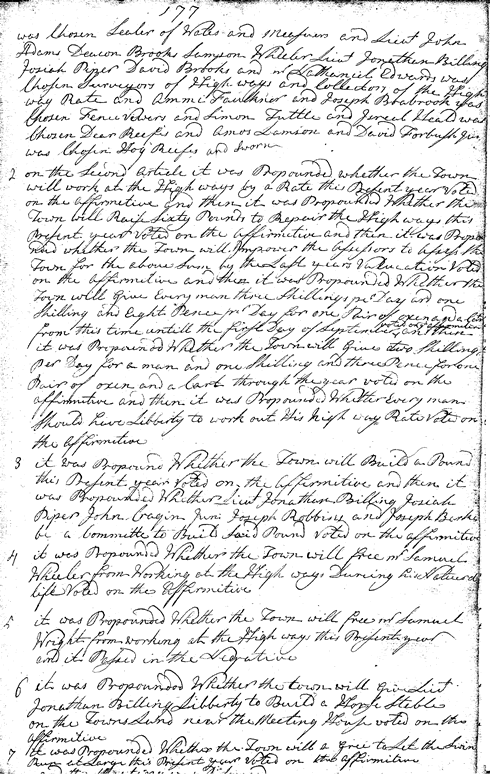 177
was Chosen Sealer of Wates and Measuers and Lieut John
Adams Deacon Brooks Samson Wheeler Lieut Jonathan Billing
Josiah Piper David Brooks and mr Nathaniel Edwards was
Chosen Surveyors of High ways and Collectors of the High
way Rate and Ammi Faulkner and Joseph Brabrook was
Chosen Fence Vewers and Simon Tuttle and Jereel Heald was
Chosen Dear Reefs and Amos Lamson and David Forbush Jur
was Chosen Hog Reefs and sworn
2 on the Second Article it was Propounded whether the Town
will work at the High ways by a Rate this Present year Voted
on the affirmitive and then it was Propounded Whether the
Town will Rais Sixty Pounds to Repair the High ways this
Present year Voted on the affirmitive and then it was Propoun
whether the Town will Impower the assessors to assess the
Town for the above Sum by the Last years Valucation Voted
on the affirmitive and then it was Propounded Whether the
Town will Give Every man three Shillings pr Day and one
Shilling and Eight Pence pr Day for one Pair of oxen and a Cart
from this time untill the first Day of September and then
it was Propounded Whether the Town will Give two Shillings
Per Day for a man and one Shilling and three Pence for one
Pair of oxen and a Cart through the year voted on the
affirmitive and then it was Propounded Whether Every man
Should have Libberty to work out His high way Rate Voted on
the affirmitive
3 it was Propound Whether the Town will Build a Pound
this Present year Voted on the affirmitive and then it
was Propounded Whether Lieut Jonathan Billing Josiah
Piper John Cragin Jun Joseph Robbins and Joseph Barke
be a Committe to Built Said Pound Voted on the affirmitive
4 it was Propounded Whether the Town will free mr Samuel
Wheeler from Working at the High ways During his Naturel
life Voted on the Affirmitive
5 it was Propounded Whether the Town will free mr Samuel
Wright from working at the High ways this Present year
and it Passed in the Negative
6 it was Propounded Whether the town will Give Liet
Jonathan Billing Libberty to Build a Horse Steble
on the Towns Land near the Meeting House voted on the
affirmitive
7 it was Propounded Whether the Town will a Gree to Let the Swin
Run at Large this Present year Voted on the affirmitive